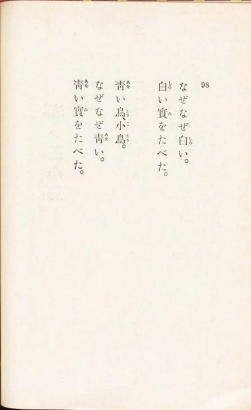 98
なぜなぜ白い。
白い實をたべた。
靑い鳥、小鳥。
なぜなぜ靑い。
靑い實をたべた。